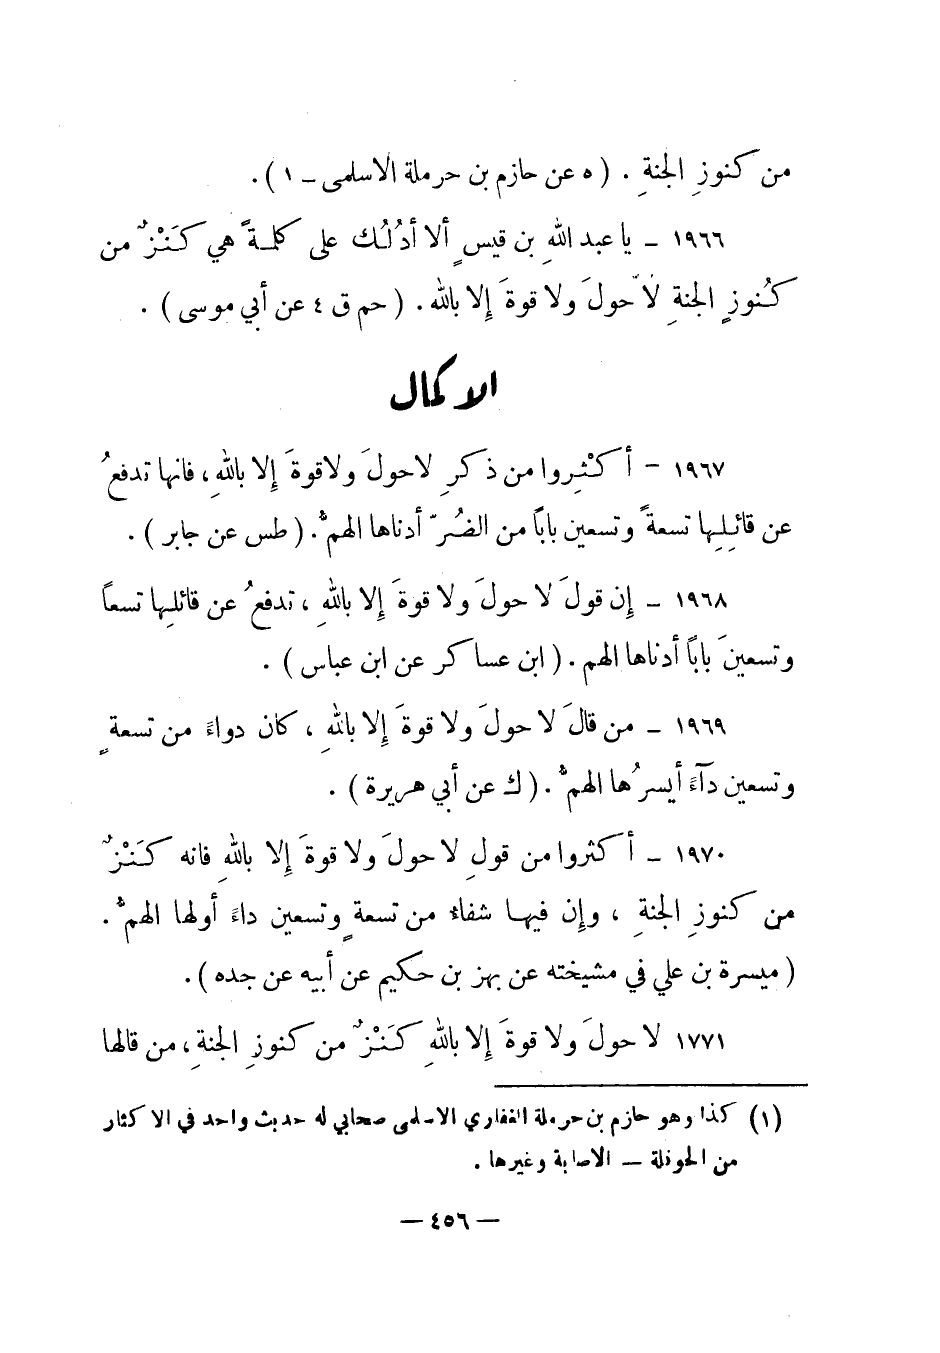 من كنوزِ الجنةِ . ( ه عن حازم بن حرملة الاسلمى ـ ١ ) .
١٩٦٦ ـ يا عبد اللهِ بن قيسٍ ألا أدُلُك على كلمةً هي كَنْزٌ من
كُنوزٍ الجنةِ لَا حولَ ولا قوةَ إِلا بالله . ( حم ق ٤ عن أبي موسى ) .
الاكمال
١٩٦٧ – أكثِروا من ذكرِ لاحولَ ولاقوةَ إِلا باللهِ ، فانها تدفعُ
عن قائلِها تسعةً وتسعين باباً من الضُرّ أدناها الهمُّ . ( طس عن جابر ) .
١٩٦٨ ـ إِن قولَ لا حولَ ولا قوةَ إِلا باللهِ ، تدفعُ عن قائلِها تسعاً
وتسعينَ باباً أدناها الهم . ( ابن عساكر عن ابن عباس ) .
١٩٦٩ ـ من قالَ لا حولَ ولا قوةَ إِلا باللهِ ، كان دواءً من تسعةٍ
وتسعين دآءً أيسرُها الهمُّ . ( ك عن أبي هريرة ) .
١٩٧٠ ـ أكثروا من قولِ لا حولَ ولا قوةَ إِلا باللهِ فانه كَنْزٌ
من كنوزِ الجنةِ ، وإِن فيها شفاءً من تسعةٍ وتسعين داءً أولها الهمُّ .
( ميسرة بن علي في مشيخته عن بهز بن حكيم عن أبيه عن جده ) .
١٧٧١ لا حولَ ولا قوةَ إِلا باللهِ كَنْزٌ من كنوزِ الجنةِ ، من قالها
(١) كذا وهو حازم بن حرملة الغفاري الاسلمى صحابي له حديث واحد في الاكثار
من الحوقلة — الاصابة وغيرها .
— ٤٥٦ —